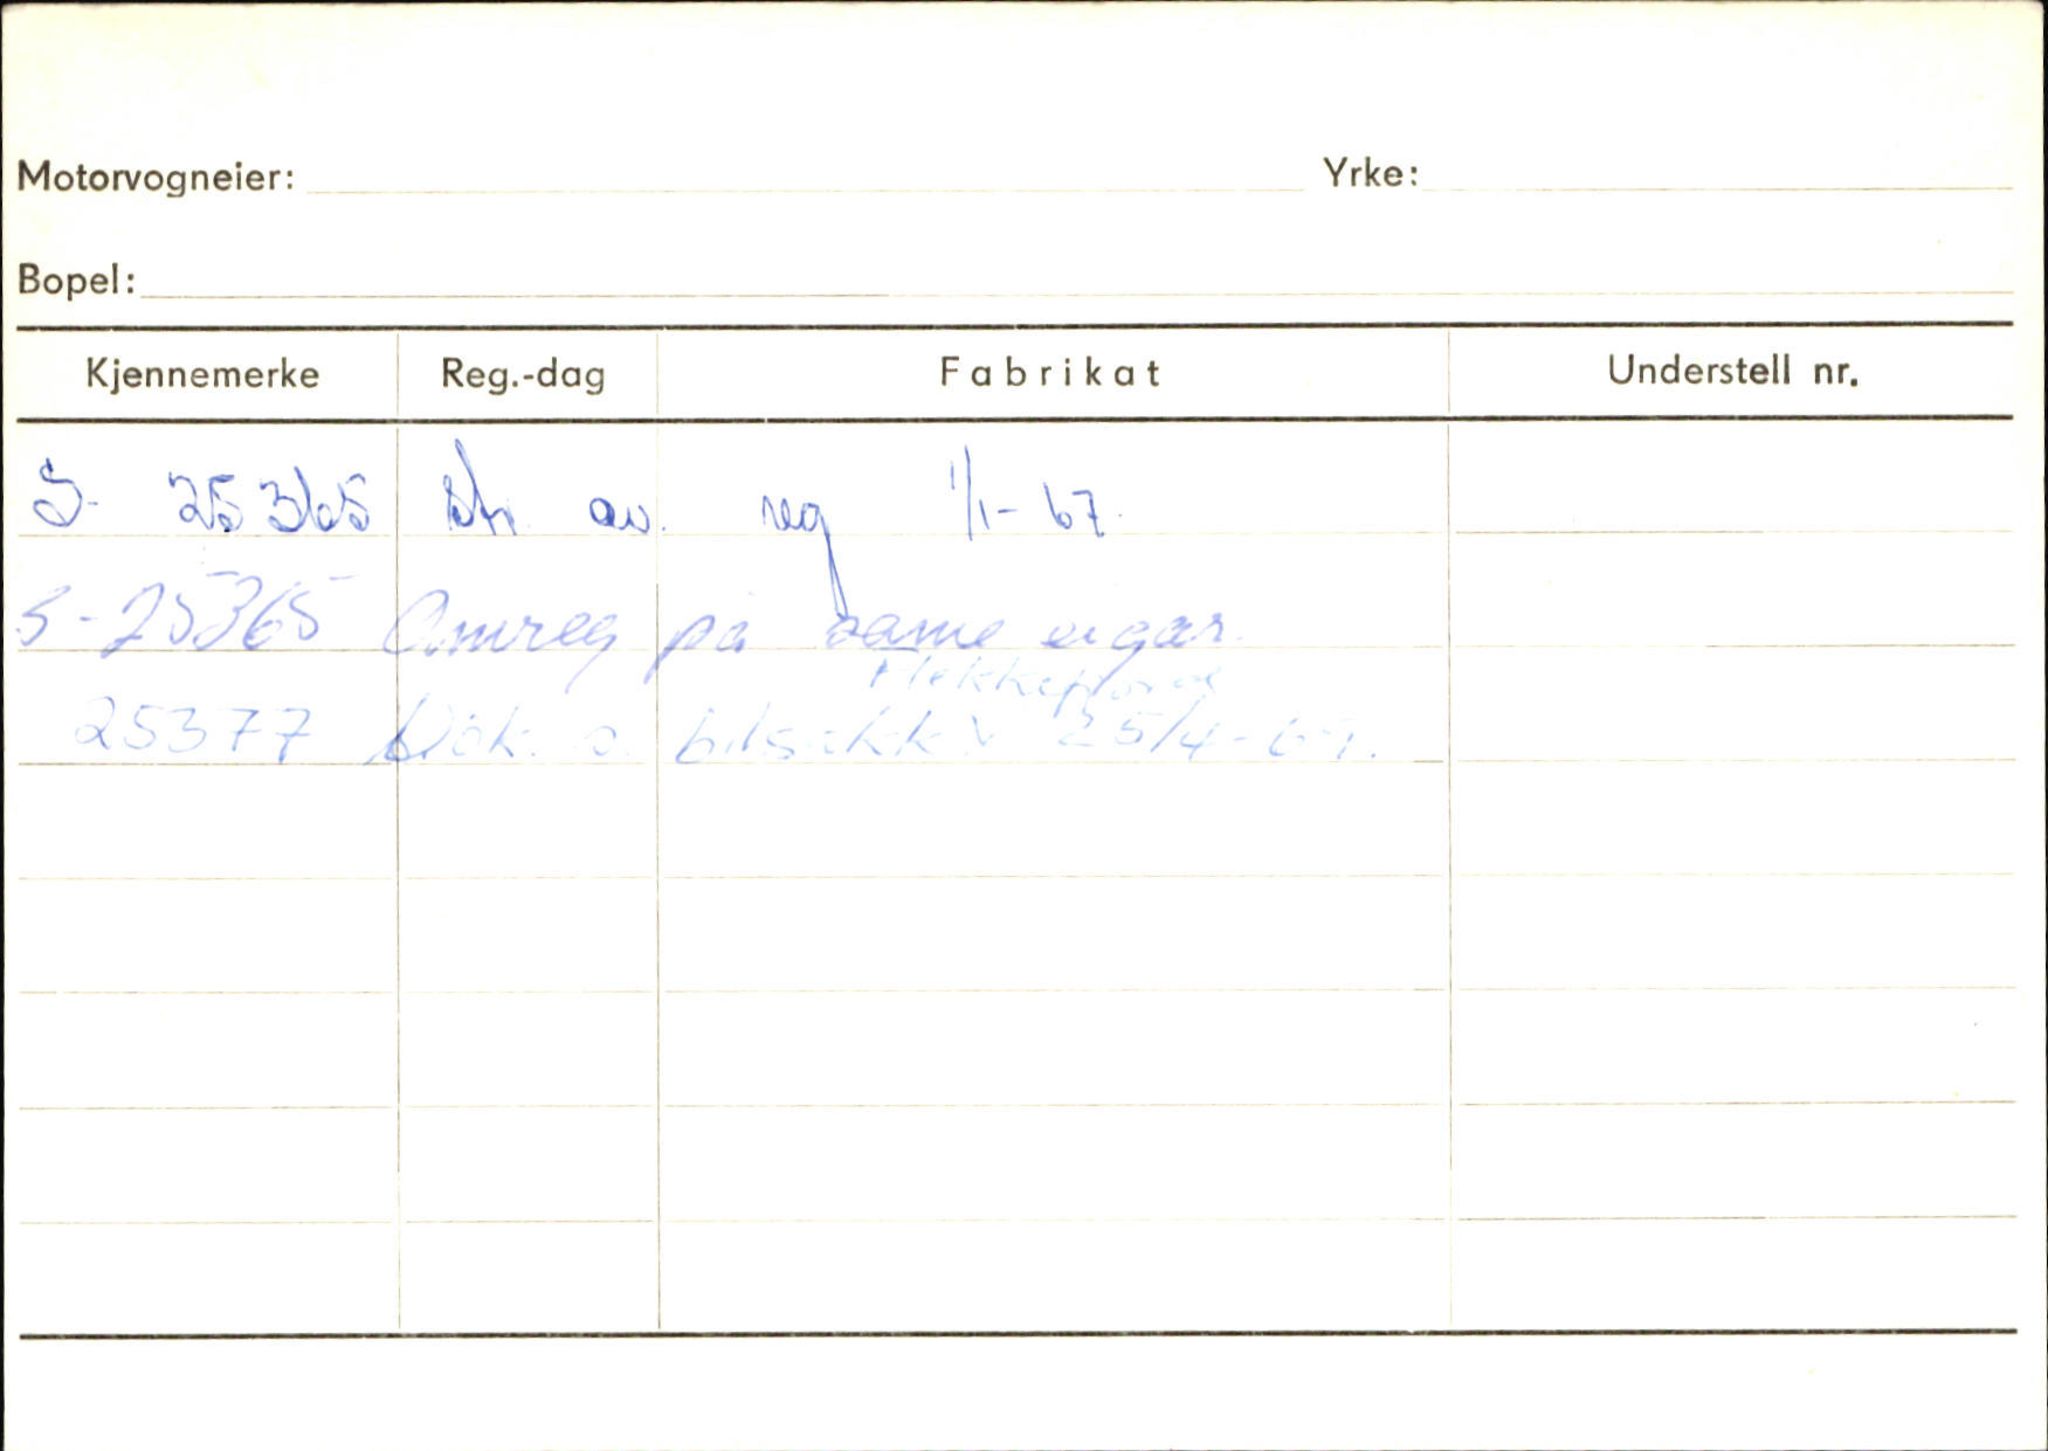 Motorvogneier: Yrke:
Bopel:
Kjennemerke Reg.-dag Fabrikat Understell nr.
S- 25365 str. av. reg 1/1-67.
S-25365 Omreg på same eigar.
Hekkeplong
25377 a. bilsakk.v 25/4-67.